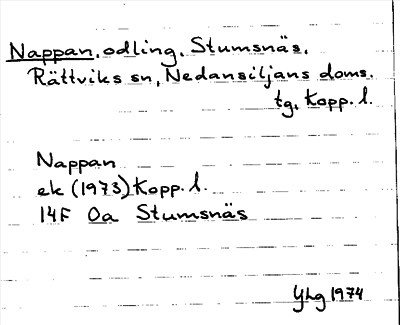 Nappan, odling, Stumsnäs,
Rättviks sn, Nedansiljans doms.
tg, Kopp. l.
Nappan
ek (1973) Kopp. l.
14F 0a Stumsnäs
Yhg 1974